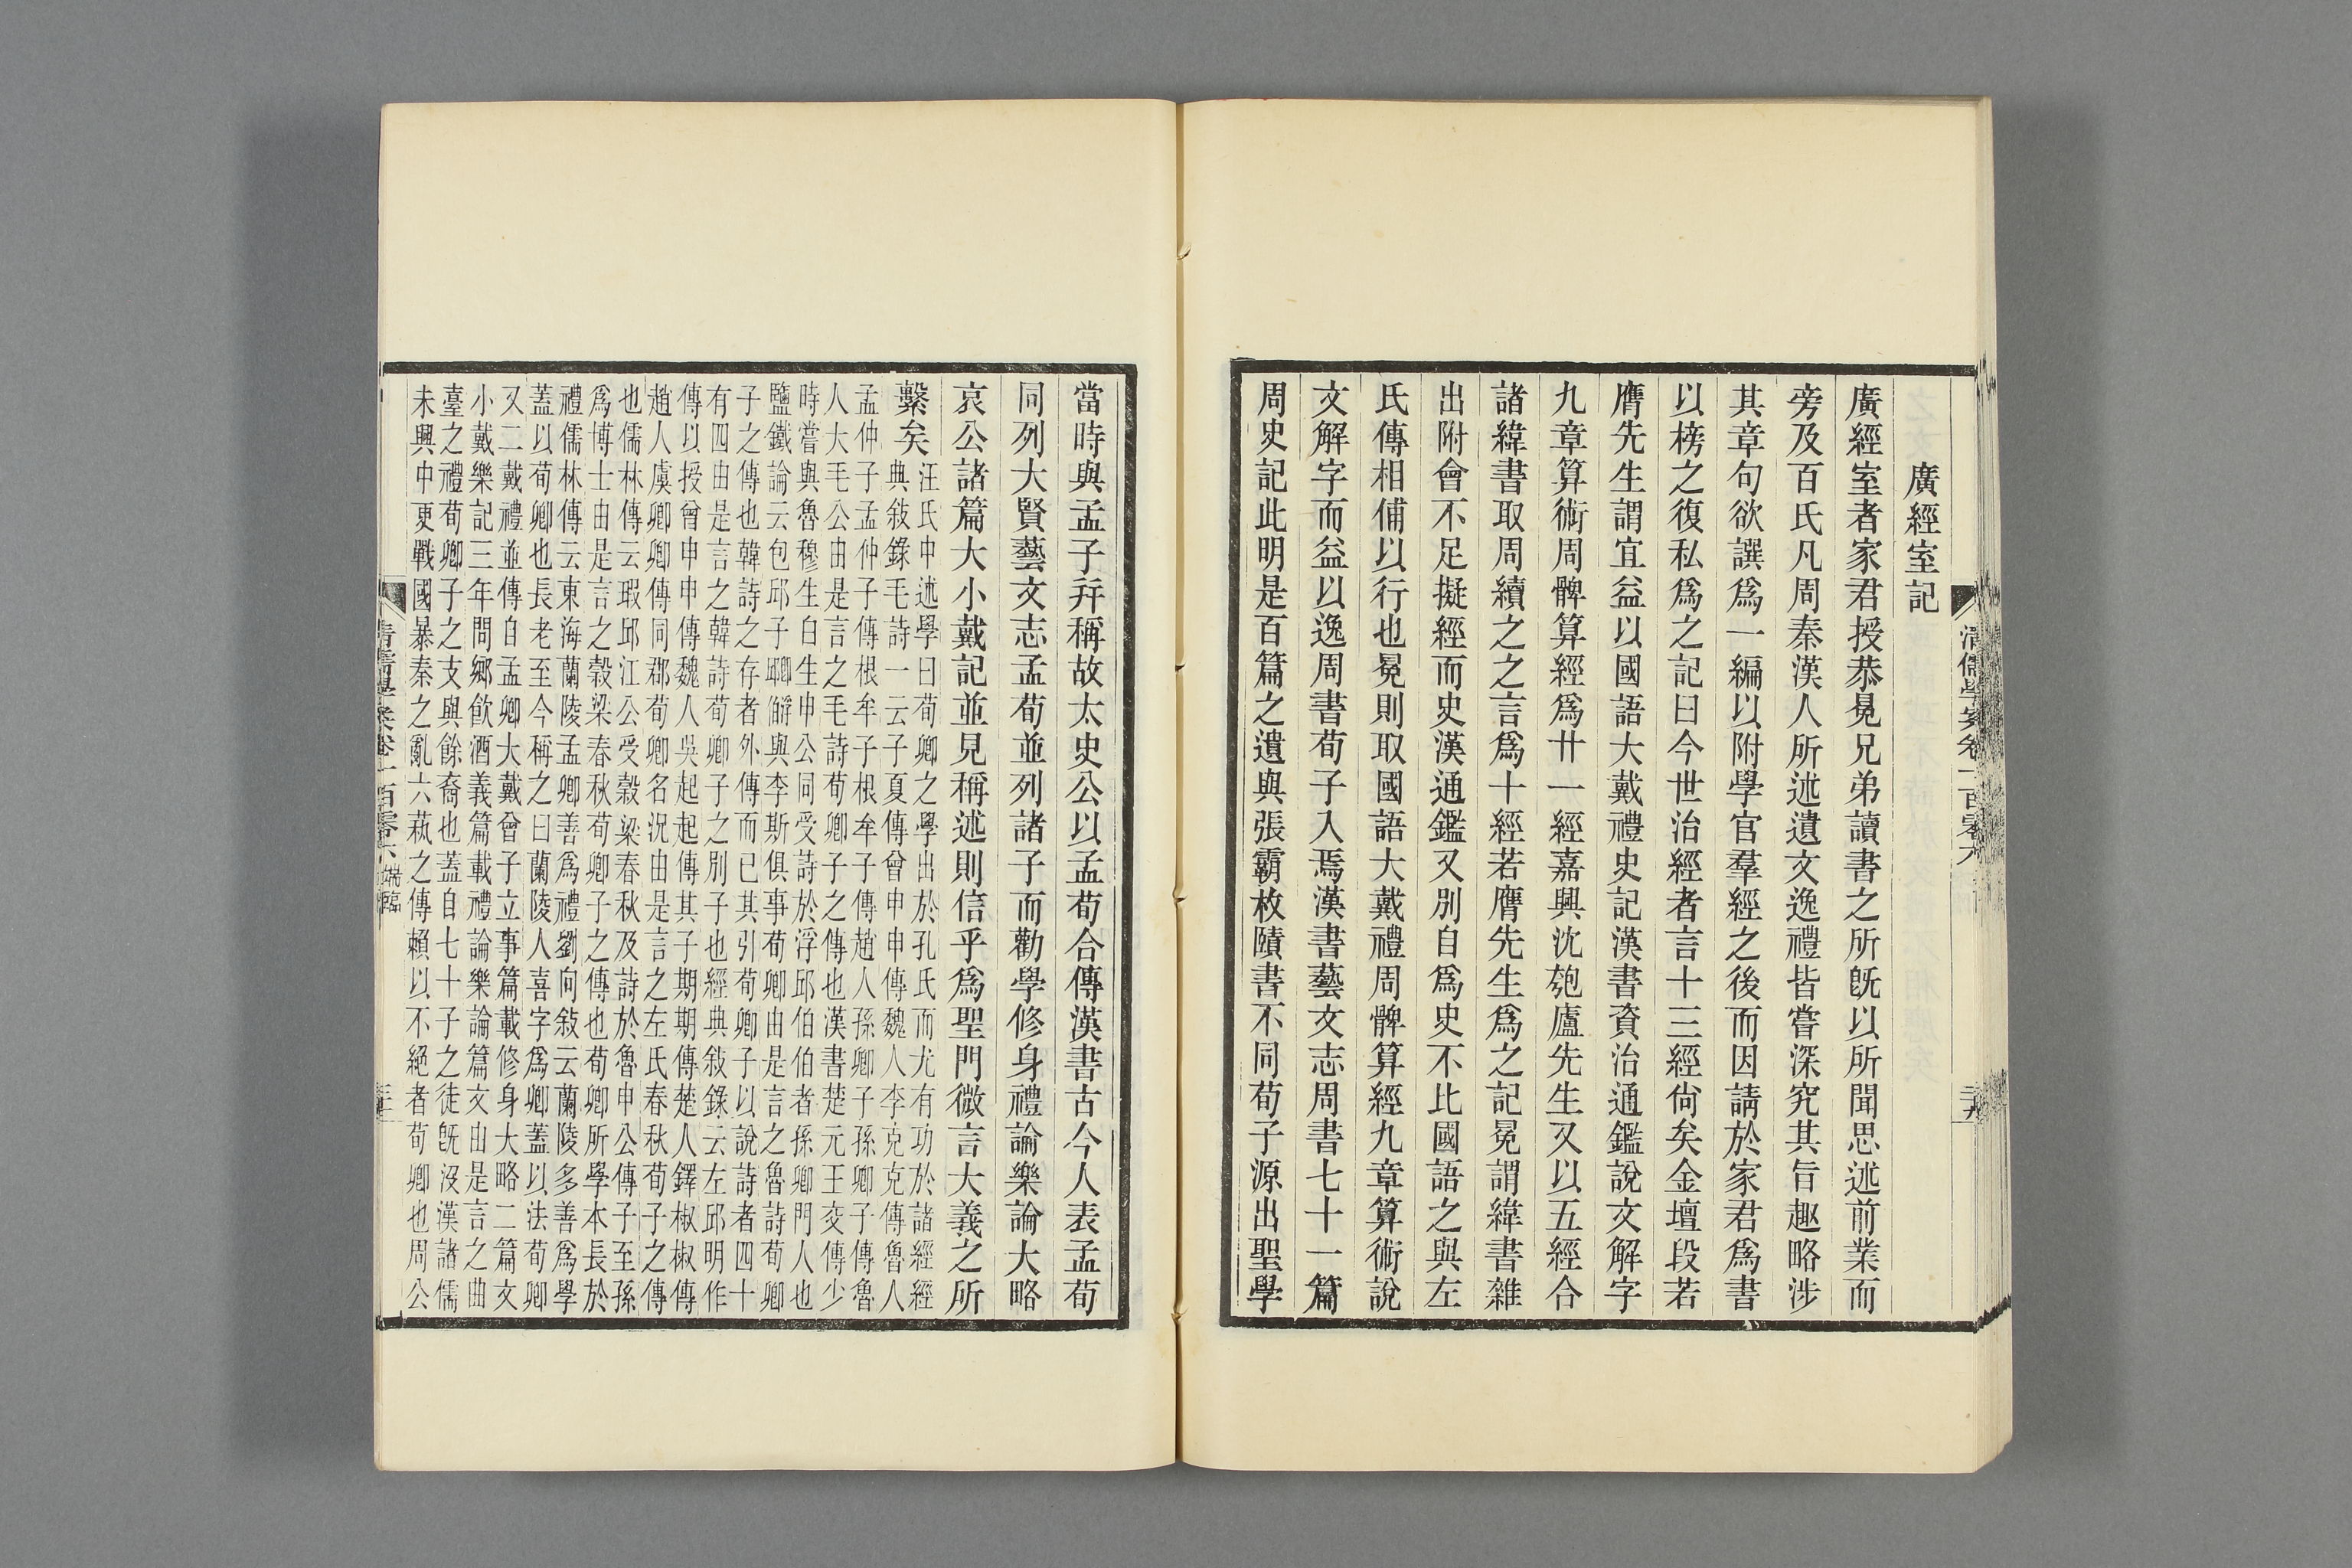 廣經室記
廣經室者家君授恭冕兄弟讀書之所旣以所聞思述前業而
旁及百氏凡周秦漢人所述遺文逸禮皆嘗深究其旨趣略涉
其章句欲譔爲一編以附學官羣經之後而因請於家君爲書
以榜之復私爲之記曰今世治經者言十三經尙矣金壇段若
膺先生謂宜益以國語大戴禮史記漢書資治通鑑說文解字
九章算術周髀算經爲廿一經嘉興沈匏廬先生又以五經合
諸緯書取周續之之言爲十經若膺先生爲之記冕謂緯書雜
出附會不足擬經而史漢通鑑又別自爲史不比國語之與左
氏傳相俌以行也冕則取國語大戴禮周髀算經九章算術說
文解字而益以逸周書荀子入焉漢書藝文志周書七十一篇
周史記此明是百篇之遺與張霸枚賾書不同荀子源出聖學
清儒學案卷一百零六
當時與孟子幷稱故太史公以孟荀合傳漢書古今人表孟荀
同列大賢藝文志孟荀並列諸子而勸學修身禮論樂論大略
哀公諸篇大小戴記並見稱述則信乎爲聖門微言大義之所
繫矣
汪氏中述學曰荀卿之學出於孔氏而尤有功於諸經經
典敍錄毛詩一云子夏傳曾申申傳魏人李克克傳魯人
孟仲子孟仲子傳根牟子根牟子傳趙人孫卿子孫卿子傳魯
人大毛公由是言之毛詩荀卿子之傳也漢書楚元王交傳少
時嘗與魯穆生白生申公同受詩於浮邱伯伯者孫卿門人也
鹽鐵論云包邱子與李斯俱事荀卿由是言之魯詩荀卿
子之傳也韓詩之存者外傳而已其引荀卿子以說詩者四十
有四由是言之韓詩荀卿子之別子也經典敍錄云左邱明作
傳以授曾申申傳魏人吳起起傳其子期期傳楚人鐸椒椒傳
趙人虞卿卿傳同郡荀卿名況由是言之左氏春秋荀子之傳
也儒林傳云瑕邱江公受穀梁春秋及詩於魯申公傳子至孫
爲博士由是言之穀梁春秋荀卿子之傳也荀卿所學本長於
禮儒林傳云東海蘭陵孟卿善爲禮劉向敍云蘭陵多善爲學
蓋以荀卿也長老至今稱之曰蘭陵人喜字爲卿蓋以法荀卿
又二戴禮並傳自孟卿大戴曾子立事篇載修身大略二篇文
小戴樂記三年問鄉飲酒義篇載禮論樂論篇文由是言之曲
臺之禮荀卿子之支與餘裔也蓋自七十子之徒旣沒漢諸儒
未興中更戰國暴秦之亂六蓺之傳賴以不絕者荀卿也周公
清儒學案卷一百零六